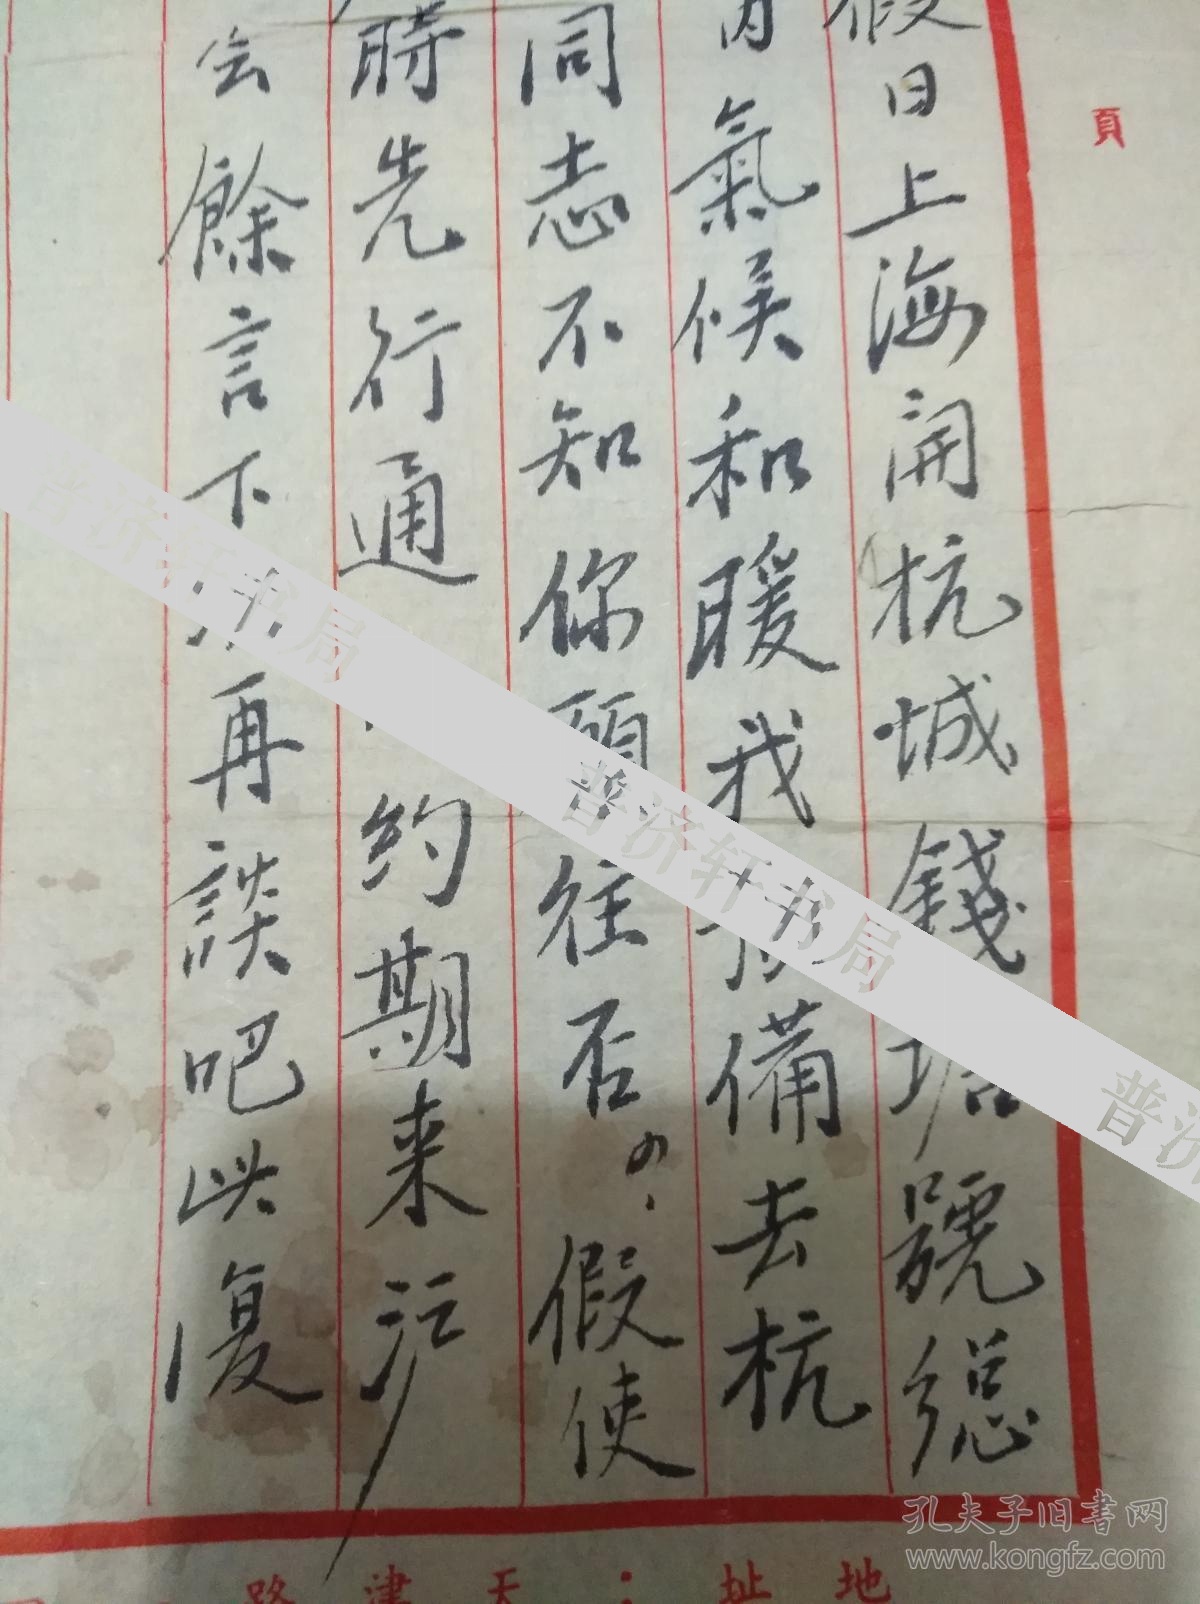 頁
假日上海開杭城錢塘號總
內氣候和暖我預備去杭
同志不知你願往否。假使
時先行通約期来沪
会餘言下次再談吧此復
地址：天津路
普济轩书局
普济轩书局
普济
孔夫子旧书网
www.kongfz.com